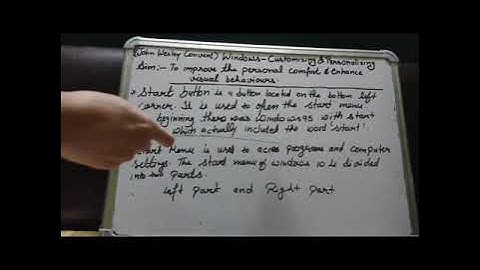 (John Wesley Convent) Windows - Customizing & Personalizing
Aim:- To improve the personal comfort & Enhance
visual behaviours.
* Start button is a button located on the bottom left
corner. It is used to open the start menu
beginning there was Windows 95 with start
which actually included the word 'start'.
Start Menu is used to acces programs and computer
settings. The start menu of windows 10 is divided
into two parts.
Left part and Right part